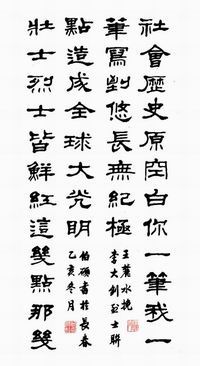 社會歷史原空白你一筆我一
筆寫到悠長無紀極
王麓水挽
李大釗烈士聯
壯士烈士皆鮮紅這幾點那幾
點造成全球大光明
書於長春
乙亥冬月